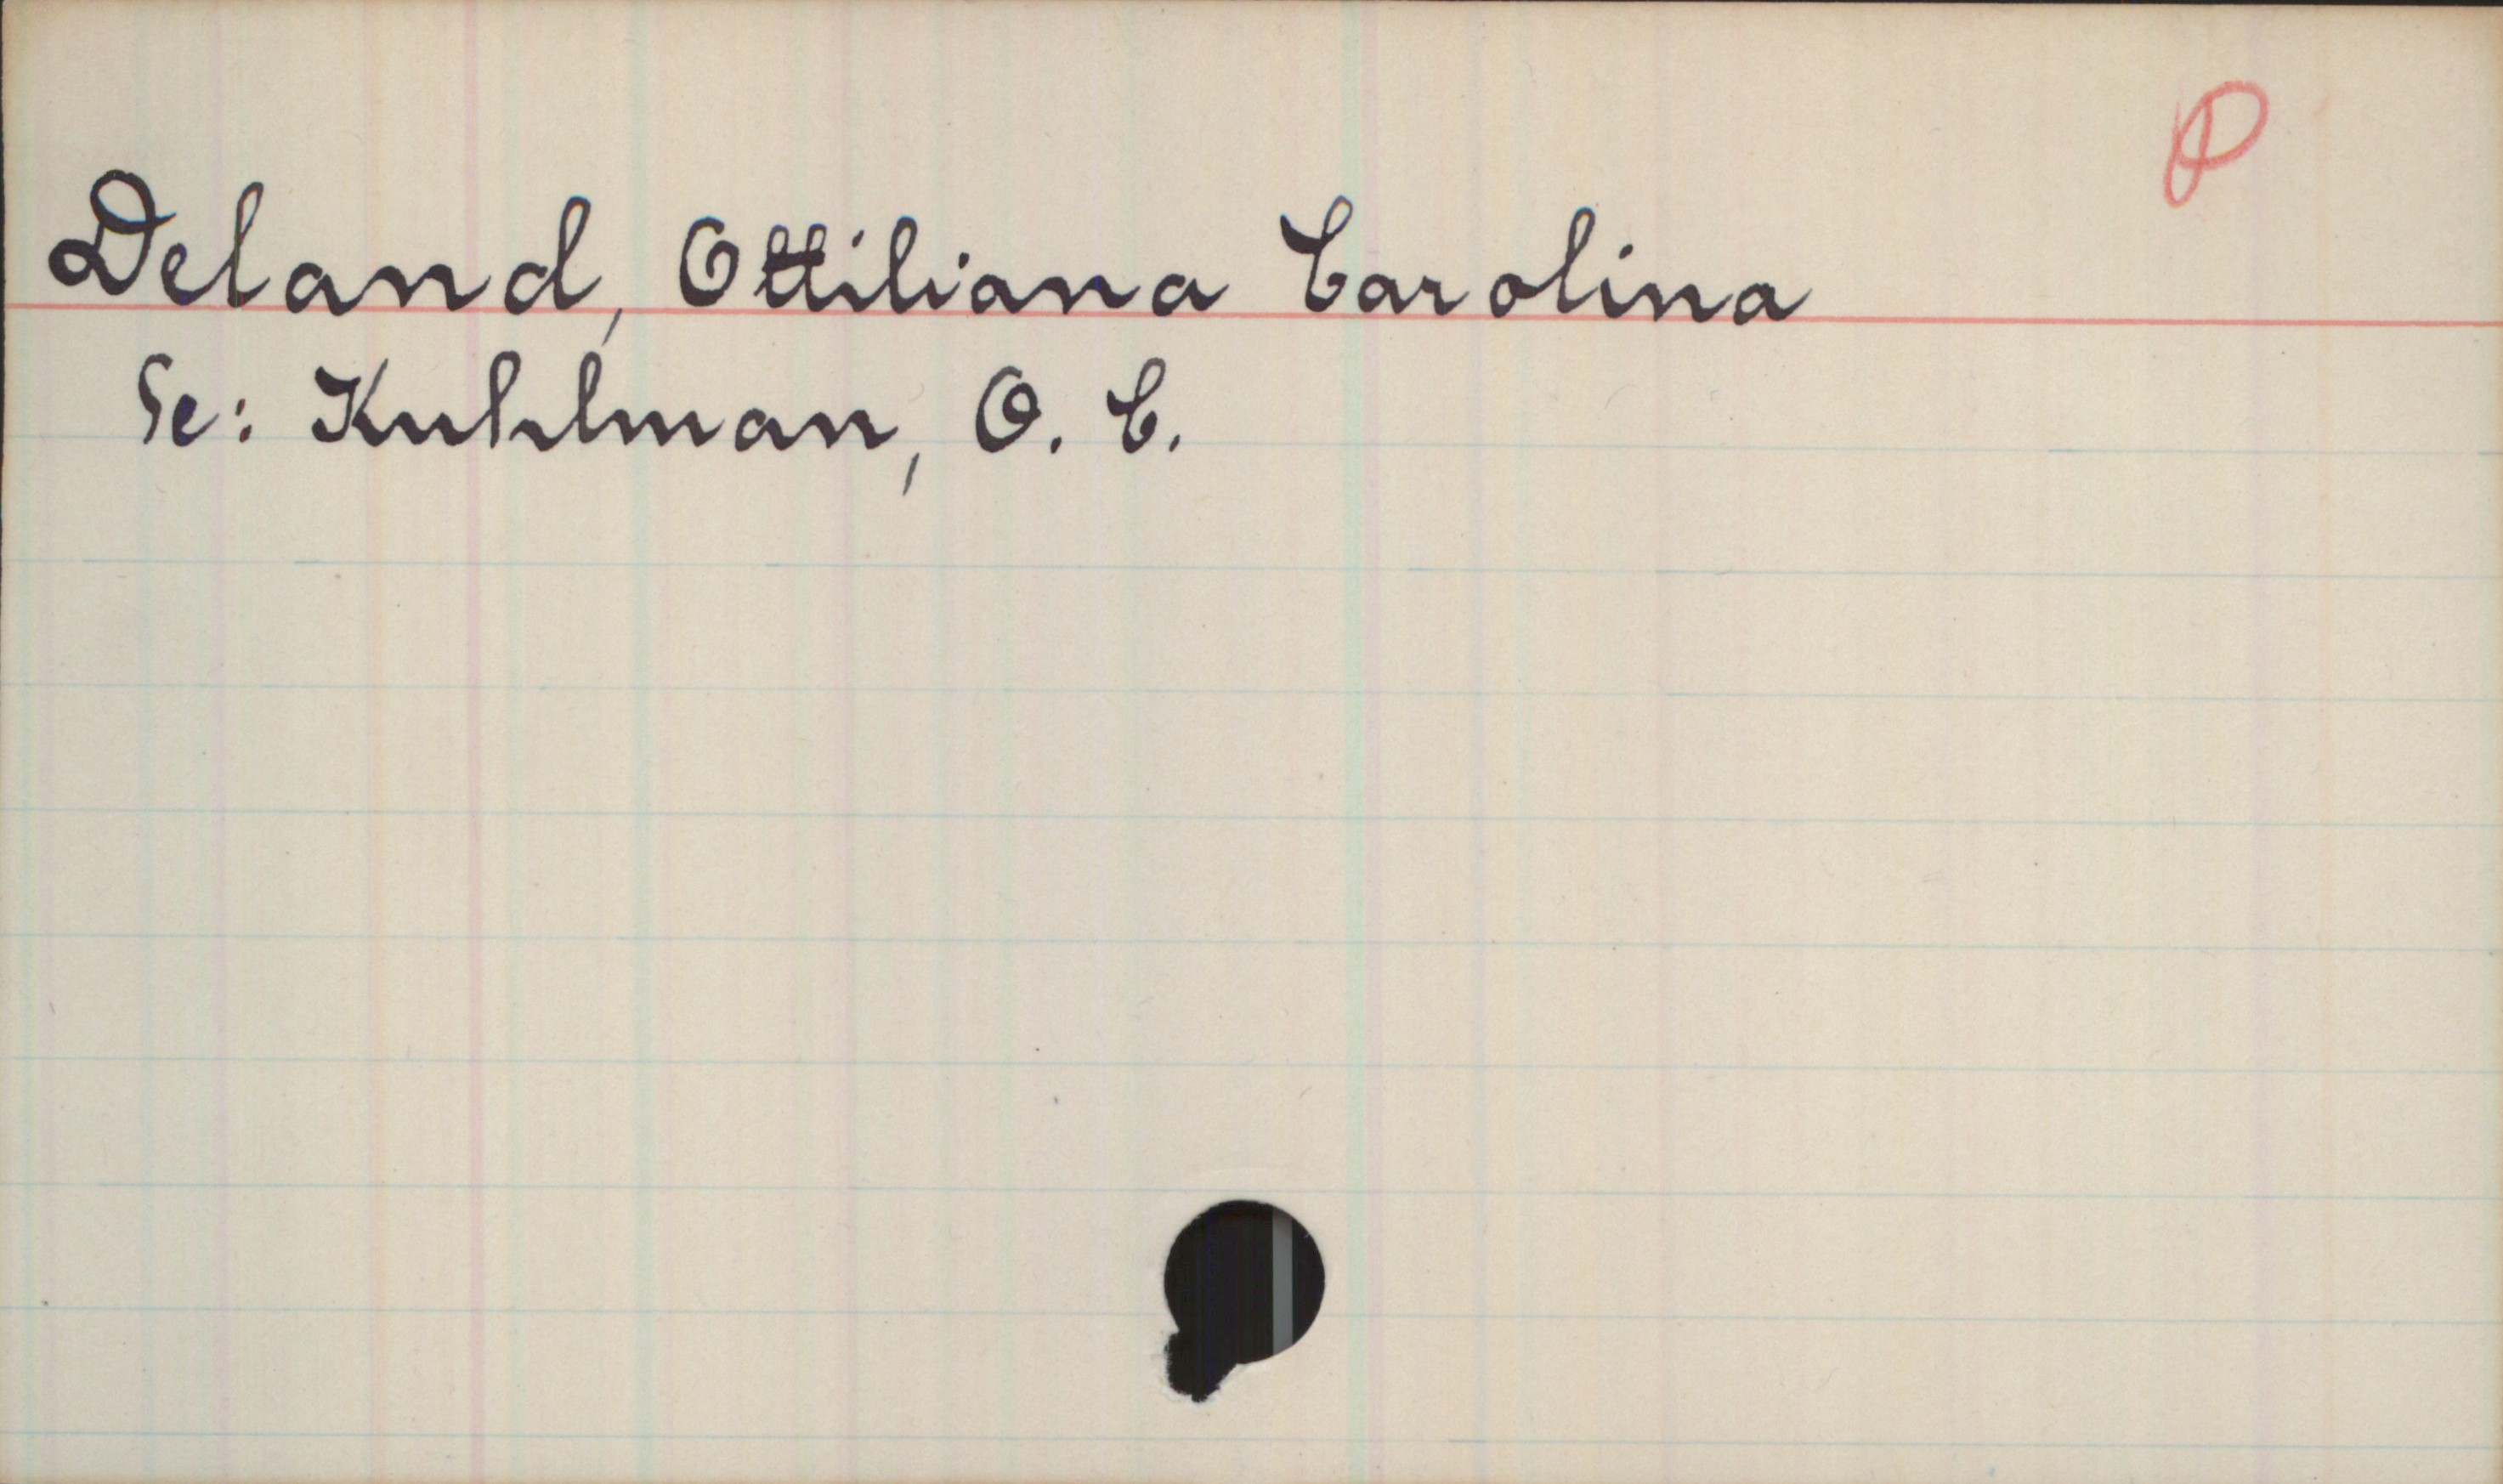 P
Deland, Ottiliana Carolina
Se: Kuhlman, O. C.